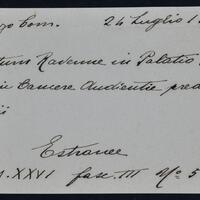 go Com. 24 Luglio 1
tum Ravenne in Palatio
ie Camere Audientie pred
ii
Estranee
s. XXVI fasc. III Nº 5